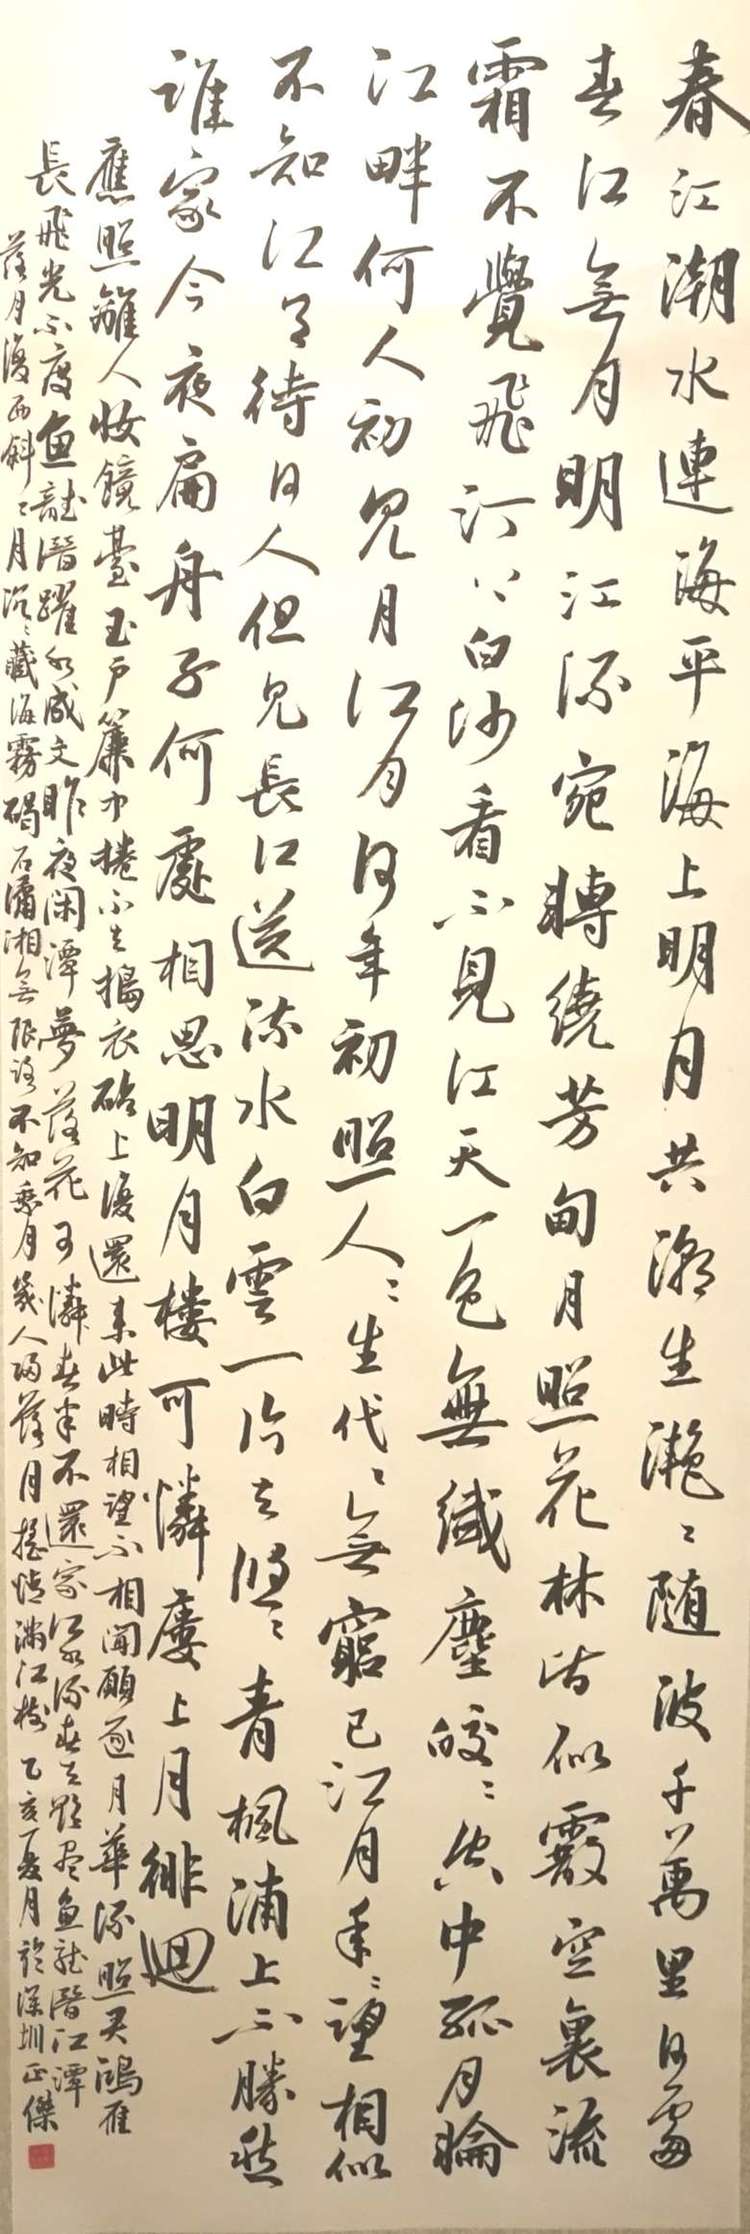 春江潮水連海平海上明月共潮生灔〻随波千萬里何處
春江無月明江流宛轉繞芳甸月照花林皆似霰空裏流
霜不覺飛汀上白沙看不見江天一色無纖塵皎〻空中孤月輪
江畔何人初見月江月何年初照人〻生代〻無窮已江月年〻望相似
不知江月待何人但見長江送流水白雲一片去悠〻青楓浦上不勝愁
誰家今夜扁舟子何處相思明月樓可憐樓上月徘迴
應照離人妝鏡臺玉戶簾中捲不去搗衣砧上復還來此時相望不相聞願逐月華流照君鴻雁
長飛光不度魚龍潛躍水成文昨夜閑潭夢落花可憐春半不還家江水流春去欲盡魚龍潛江潭
落月復西斜〻月沉〻藏海霧碣石瀟湘無限路不知乘月幾人歸落月搖情滿江樹 乙亥夏月於深圳正傑